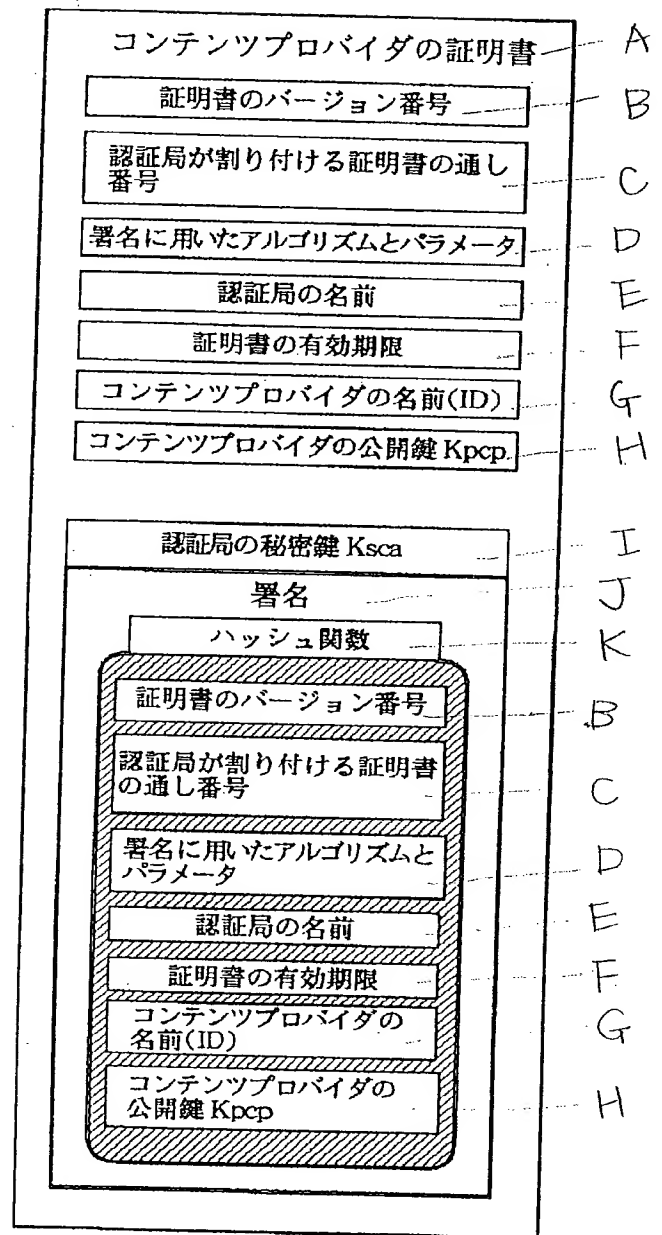 コンテンツプロバイダの証明書 A
証明書のバージョン番号 B
認証局が割り付ける証明書の通し
番号 C
署名に用いたアルゴリズムとパラメータ D
認証局の名前 E
証明書の有効期限 F
コンテンツプロバイダの名前(ID) G
コンテンツプロバイダの公開鍵 Kpcp H
認証局の秘密鍵 Ksca I
署名 J
ハッシュ関数 K
証明書のバージョン番号 B
認証局が割り付ける証明書
の通し番号 C
署名に用いたアルゴリズムと
パラメータ D
認証局の名前 E
証明書の有効期限 F
コンテンツプロバイダの
名前(ID) G
コンテンツプロバイダの
公開鍵 Kpcp H